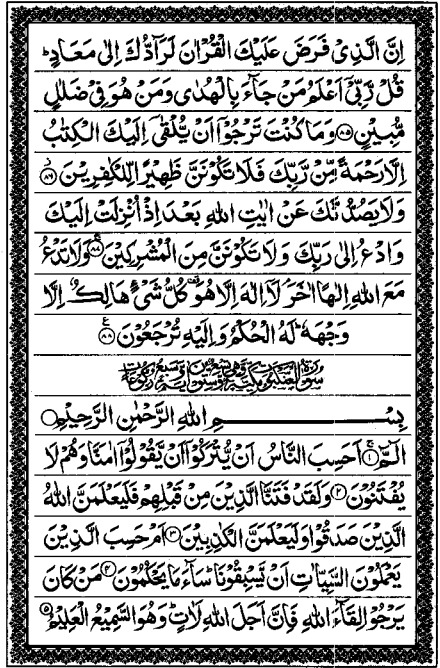 اِنَّ الَّذِىْ فَرَضَ عَلَيْكَ الْقُرْاٰنَ لَرَآدُّكَ اِلٰى مَعَادٍ ؕ
قُلْ رَّبِّىْۤ اَعْلَمُ مَنْ جَآءَ بِالْهُدٰى وَمَنْ هُوَ فِىْ ضَلٰلٍ
مُّبِيْنٍ ﴿۸۵﴾ وَمَا كُنْتَ تَرْجُوْۤا اَنْ يُّلْقٰۤى اِلَيْكَ الْكِتٰبُ
اِلَّا رَحْمَةً مِّنْ رَّبِّكَ فَلَا تَكُوْنَنَّ ظَهِيْرًا لِّلْكٰفِرِيْنَ ﴿۸۶﴾
وَلَا يَصُدُّنَّكَ عَنْ اٰيٰتِ اللّٰهِ بَعْدَ اِذْ اُنْزِلَتْ اِلَيْكَ
وَادْعُ اِلٰى رَبِّكَ وَلَا تَكُوْنَنَّ مِنَ الْمُشْرِكِيْنَ ﴿۸۷﴾ وَلَا تَدْعُ
مَعَ اللّٰهِ اِلٰهًا اٰخَرَ ۘ لَاۤ اِلٰهَ اِلَّا هُوَ ۟ كُلُّ شَىْءٍ هَالِكٌ اِلَّا
وَجْهَهٗ ؕ لَهُ الْحُكْمُ وَاِلَيْهِ تُرْجَعُوْنَ ﴿۸۸﴾
سورة العنكبوت مكية وهي تسع وستون آية وسبع ركوعات
بِسْمِ اللّٰهِ الرَّحْمٰنِ الرَّحِيْمِ
الٓمّٓ ﴿۱﴾ اَحَسِبَ النَّاسُ اَنْ يُّتْرَكُوْۤا اَنْ يَّقُوْلُوْۤا اٰمَنَّا وَهُمْ لَا
يُفْتَنُوْنَ ﴿۲﴾ وَلَقَدْ فَتَنَّا الَّذِيْنَ مِنْ قَبْلِهِمْ فَلَيَعْلَمَنَّ اللّٰهُ
الَّذِيْنَ صَدَقُوْا وَلَيَعْلَمَنَّ الْكٰذِبِيْنَ ﴿۳﴾ اَمْ حَسِبَ الَّذِيْنَ
يَعْمَلُوْنَ السَّيِّاٰتِ اَنْ يَّسْبِقُوْنَا ؕ سَآءَ مَا يَحْكُمُوْنَ ﴿۴﴾ مَنْ كَانَ
يَرْجُوْا لِقَآءَ اللّٰهِ فَاِنَّ اَجَلَ اللّٰهِ لَاٰتٍ ؕ وَهُوَ السَّمِيْعُ الْعَلِيْمُ ﴿۵﴾